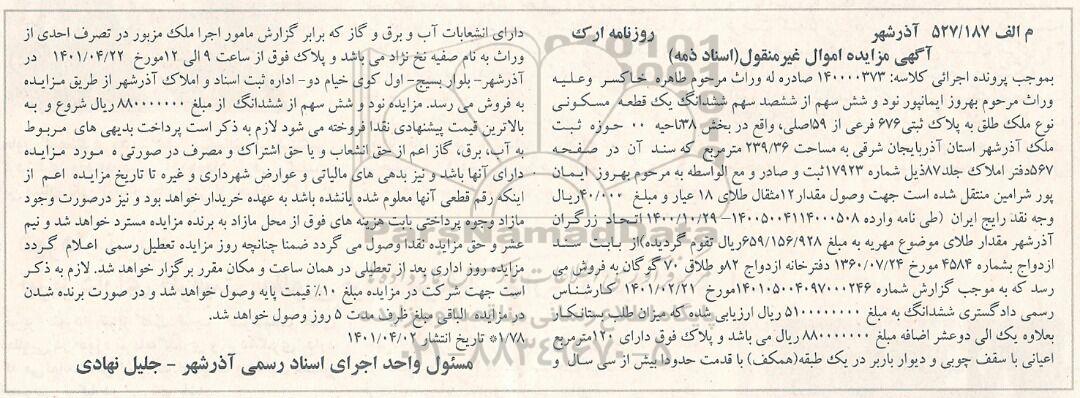 م الف ۵۲۷/۱۸۷ آذرشهر روزنامه ارک
آگهی مزایده اموال غیرمنقول(اسناد ذمه)
بموجب پرونده اجرائی کلاسه: ۱۴۰۰۰۰۳۷۳ صادره له وراث مرحوم طاهره خاکسر وعلیه
وراث مرحوم بهروز ایمانپور نود و شش سهم از ششصد سهم ششدانگ یک قطعه مسکونی
نوع ملک طلق به پلاک ثبتی۶۷۶ فرعی از ۵۹اصلی، واقع در بخش ۳۸ناحیه ۰۰ حوزه ثبت
ملک آذرشهر استان آذربایجان شرقی به مساحت ۲۳۹/۳۶ مترمربع که سند آن در صفحه
۵۶۷دفتر املاک جلد۸۷ذیل شماره ۱۷۹۲۳ثبت و صادر و مع الواسطه به مرحوم بهروز ایمان
پور شرامین منتقل شده است جهت وصول مقدار۱۲مثقال طلای ۱۸ عیار و مبلغ ۴۰/۰۰۰ریال
وجه نقد رایج ایران (طی نامه وارده ۱۴۰۰۵۰۰۴۱۱۴۰۰۰۵۰۸-۱۴۰۰/۱۰/۲۹ اتحاد زرگران
آذرشهر مقدار طلای موضوع مهریه به مبلغ ۶۵۹/۱۵۶/۹۲۸ریال تقوم گردیده)از بابت سند
ازدواج بشماره ۴۵۸۴ مورخ ۱۳۶۰/۰۷/۲۴ دفترخانه ازدواج ۸۲و طلاق ۷۰ گوگان به فروش می
رسد که به موجب گزارش شماره ۱۴۰۱۰۵۰۰۴۰۹۷۰۰۰۲۴۶مورخ ۱۴۰۱/۰۲/۲۱ کارشناس
رسمی دادگستری ششدانگ به مبلغ ۵۱۰۰۰۰۰۰۰۰ ریال ارزیابی شده که میزان طلب بستانکار
بعلاوه یک الی دوعشر اضافه مبلغ ۸۸۰۰۰۰۰۰۰ ریال می باشد و پلاک فوق دارای ۱۲۰مترمربع
اعیانی با سقف چوبی و دیوار باربر در یک طبقه(همکف) با قدمت حدودا بیش از سی سال و
دارای انشعابات آب و برق و گاز که برابر گزارش مامور اجرا ملک مزبور در تصرف احدی از
وراث به نام صفیه نخ نژاد می باشد و پلاک فوق از ساعت ۹ الی ۱۲مورخ ۱۴۰۱/۰۴/۲۲ در
آذرشهر- بلوار بسیج- اول کوی خیام دو- اداره ثبت اسناد و املاک آذرشهر از طریق مزایده
به فروش می رسد. مزایده نود و شش سهم از ششدانگ از مبلغ ۸۸۰۰۰۰۰۰۰ ریال شروع و به
بالاترین قیمت پیشنهادی نقدا فروخته می شود لازم به ذکر است پرداخت بدیهی های مربوط
به آب، برق، گاز اعم از حق انشعاب و یا حق اشتراک و مصرف در صورتی ه مورد مزایده
دارای آنها باشد و نیز بدهی های مالیاتی و عوارض شهرداری و غیره تا تاریخ مزایده اعم از
اینکه رقم قطعی آنها معلوم شده یانشده باشد به عهده خریدار خواهد بود و نیز درصورت وجود
مازاد وجوه پرداختی بابت هزینه های فوق از محل مازاد به برنده مزایده مسترد خواهد شد و نیم
عشر و حق مزایده نقدا وصول می گردد ضمنا چنانچه روز مزایده تعطیل رسمی اعلام گردد
مزایده روز اداری بعد از تعطیلی در همان ساعت و مکان مقرر برگزار خواهد شد. لازم به ذکر
است جهت شرکت در مزایده مبلغ ۱۰٪ قیمت پایه وصول خواهد شد و در صورت برنده شدن
در مزایده الباقی مبلغ ظرف مدت ۵ روز وصول خواهد شد.
۱/۷۸* تاریخ انتشار ۱۴۰۱/۰۴/۰۲
مسئول واحد اجرای اسناد رسمی آذرشهر - جلیل نهادی
ParsNamadData